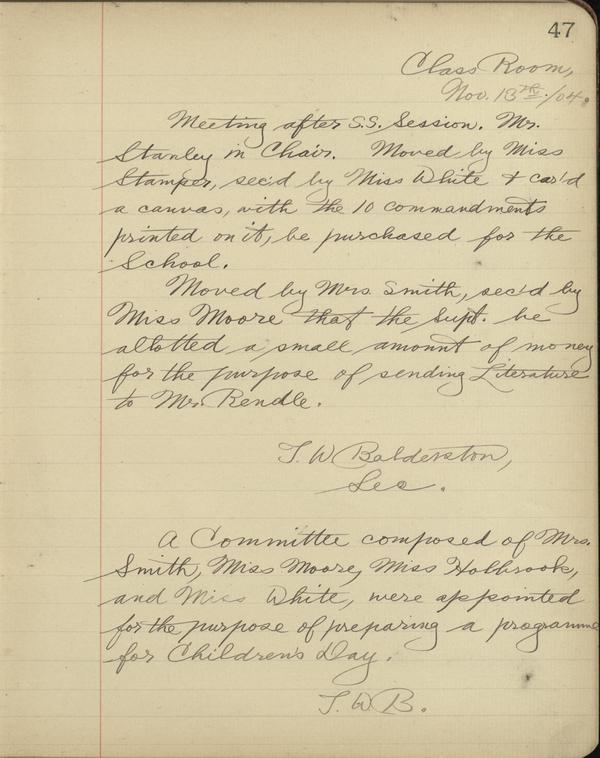 47
Class Room,
Nov. 13th/04.
Meeting after S.S. Session. Mr.
Stanley in Chair. Moved by Miss
Stamper, sec'd by Miss White & car'd
a canvas, with the 10 commandments
printed on it, be purchased for the
School.
Moved by Mrs. Smith, sec'd by
Miss Moore that the Supt. be
allotted a small amount of money
for the purpose of sending Literature
to Mr. Rendle.
T. W Balderston,
Sec.
A Committee composed of Mrs.
Smith, Miss Moore, Miss Holbrook,
and Miss White, were appointed
for the purpose of preparing a programme
for Children's Day.
T. W B.